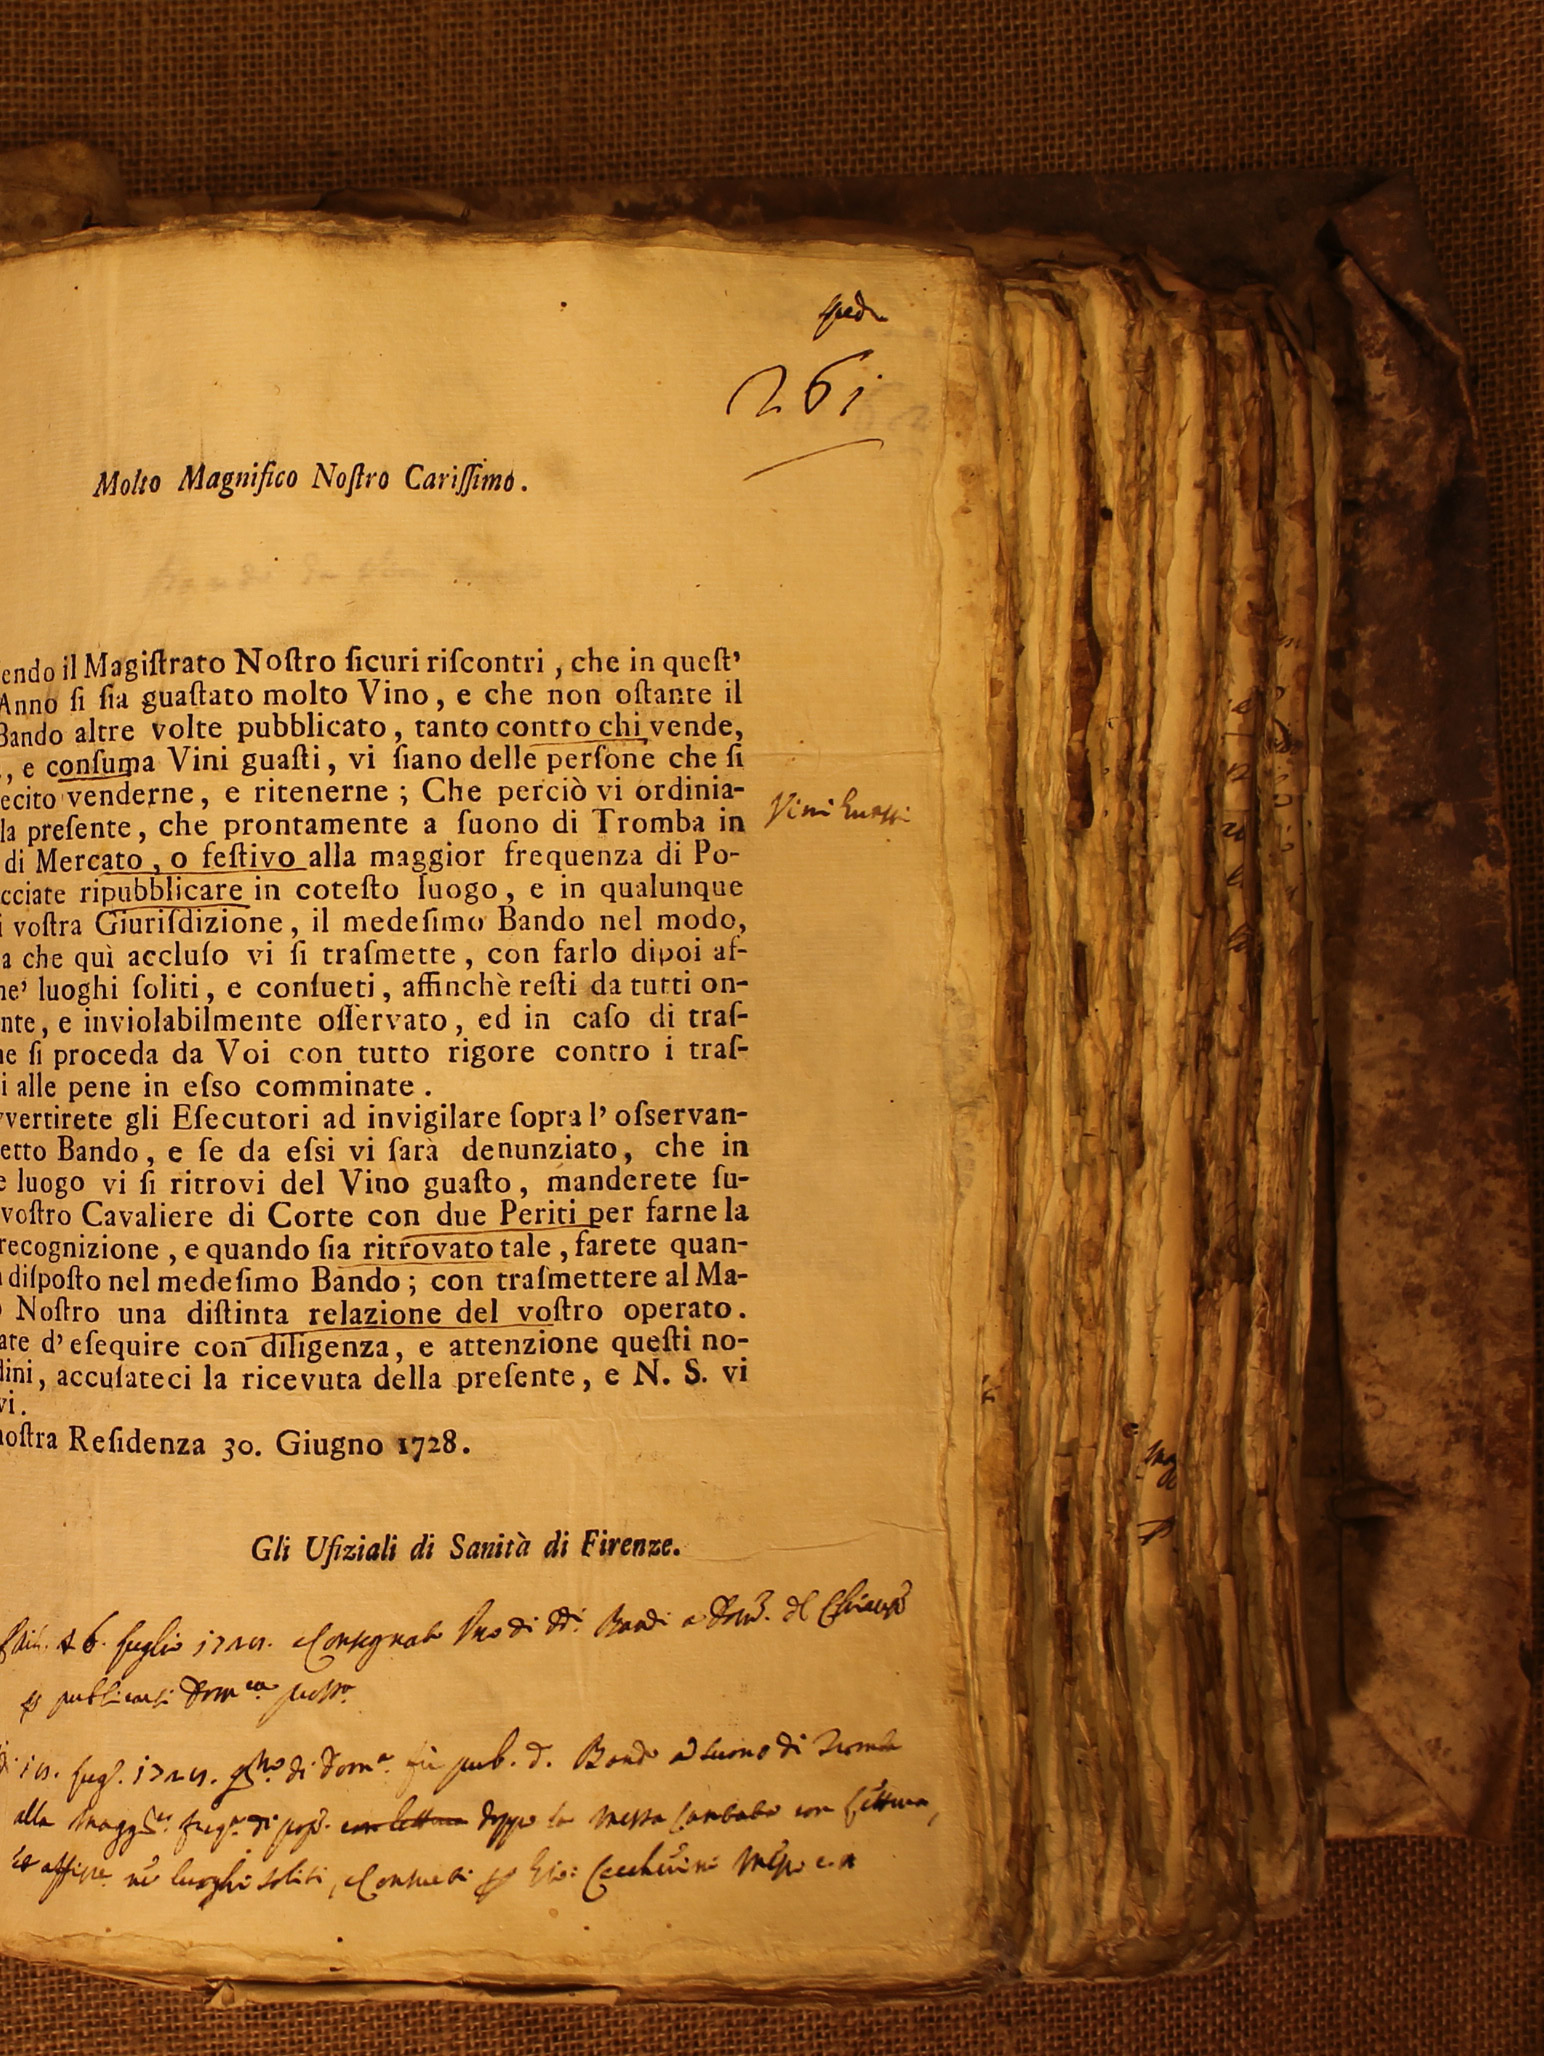 261
Molto Magnifico Noſtro Cariſſimo.
endo il Magiſtrato Noſtro ſicuri riſcontri, che in queſt'
Anno ſi ſia guaſtato molto Vino, e che non oſtante il
Bando altre volte pubblicato, tanto contro chi vende,
., e conſuma Vini guaſti, vi ſiano delle perſone che ſi
ecito venderne, e ritenerne; Che perciò vi ordinia-
la preſente, che prontamente a ſuono di Tromba in
di Mercato, o feſtivo alla maggior frequenza di Po-
cciate ripubblicare in coteſto luogo, e in qualunque
i voſtra Giuriſdizione, il medeſimo Bando nel modo,
a che quì accluſo vi ſi traſmette, con farlo dipoi af-
ne' luoghi ſoliti, e conſueti, affinchè reſti da tutti on-
nte, e inviolabilmente oſſervato, ed in caſo di traſ-
ne ſi proceda da Voi con tutto rigore contro i traſ-
i alle pene in eſso comminate.
vvertirete gli Eſecutori ad invigilare ſopra l' oſservan-
etto Bando, e ſe da eſsi vi ſarà denunziato, che in
e luogo vi ſi ritrovi del Vino guaſto, manderete ſu-
voſtro Cavaliere di Corte con due Periti per farne la
recognizione, e quando ſia ritrovato tale, farete quan-
diſpoſto nel medeſimo Bando; con traſmettere al Ma-
Noſtro una diſtinta relazione del voſtro operato.
ate d' eſequire con diligenza, e attenzione queſti no-
dini, accuſateci la ricevuta della preſente, e N. S. vi
vi.
noſtra Reſidenza 30. Giugno 1728.
Vini Guasti
Gli Ufiziali di Sanità di Firenze.
Consegnato Bandi a
publicarsi
di Bando a suono di Tromba
alla doppo la Messa Cantata con lettura,
luoghi soliti, e Consueti